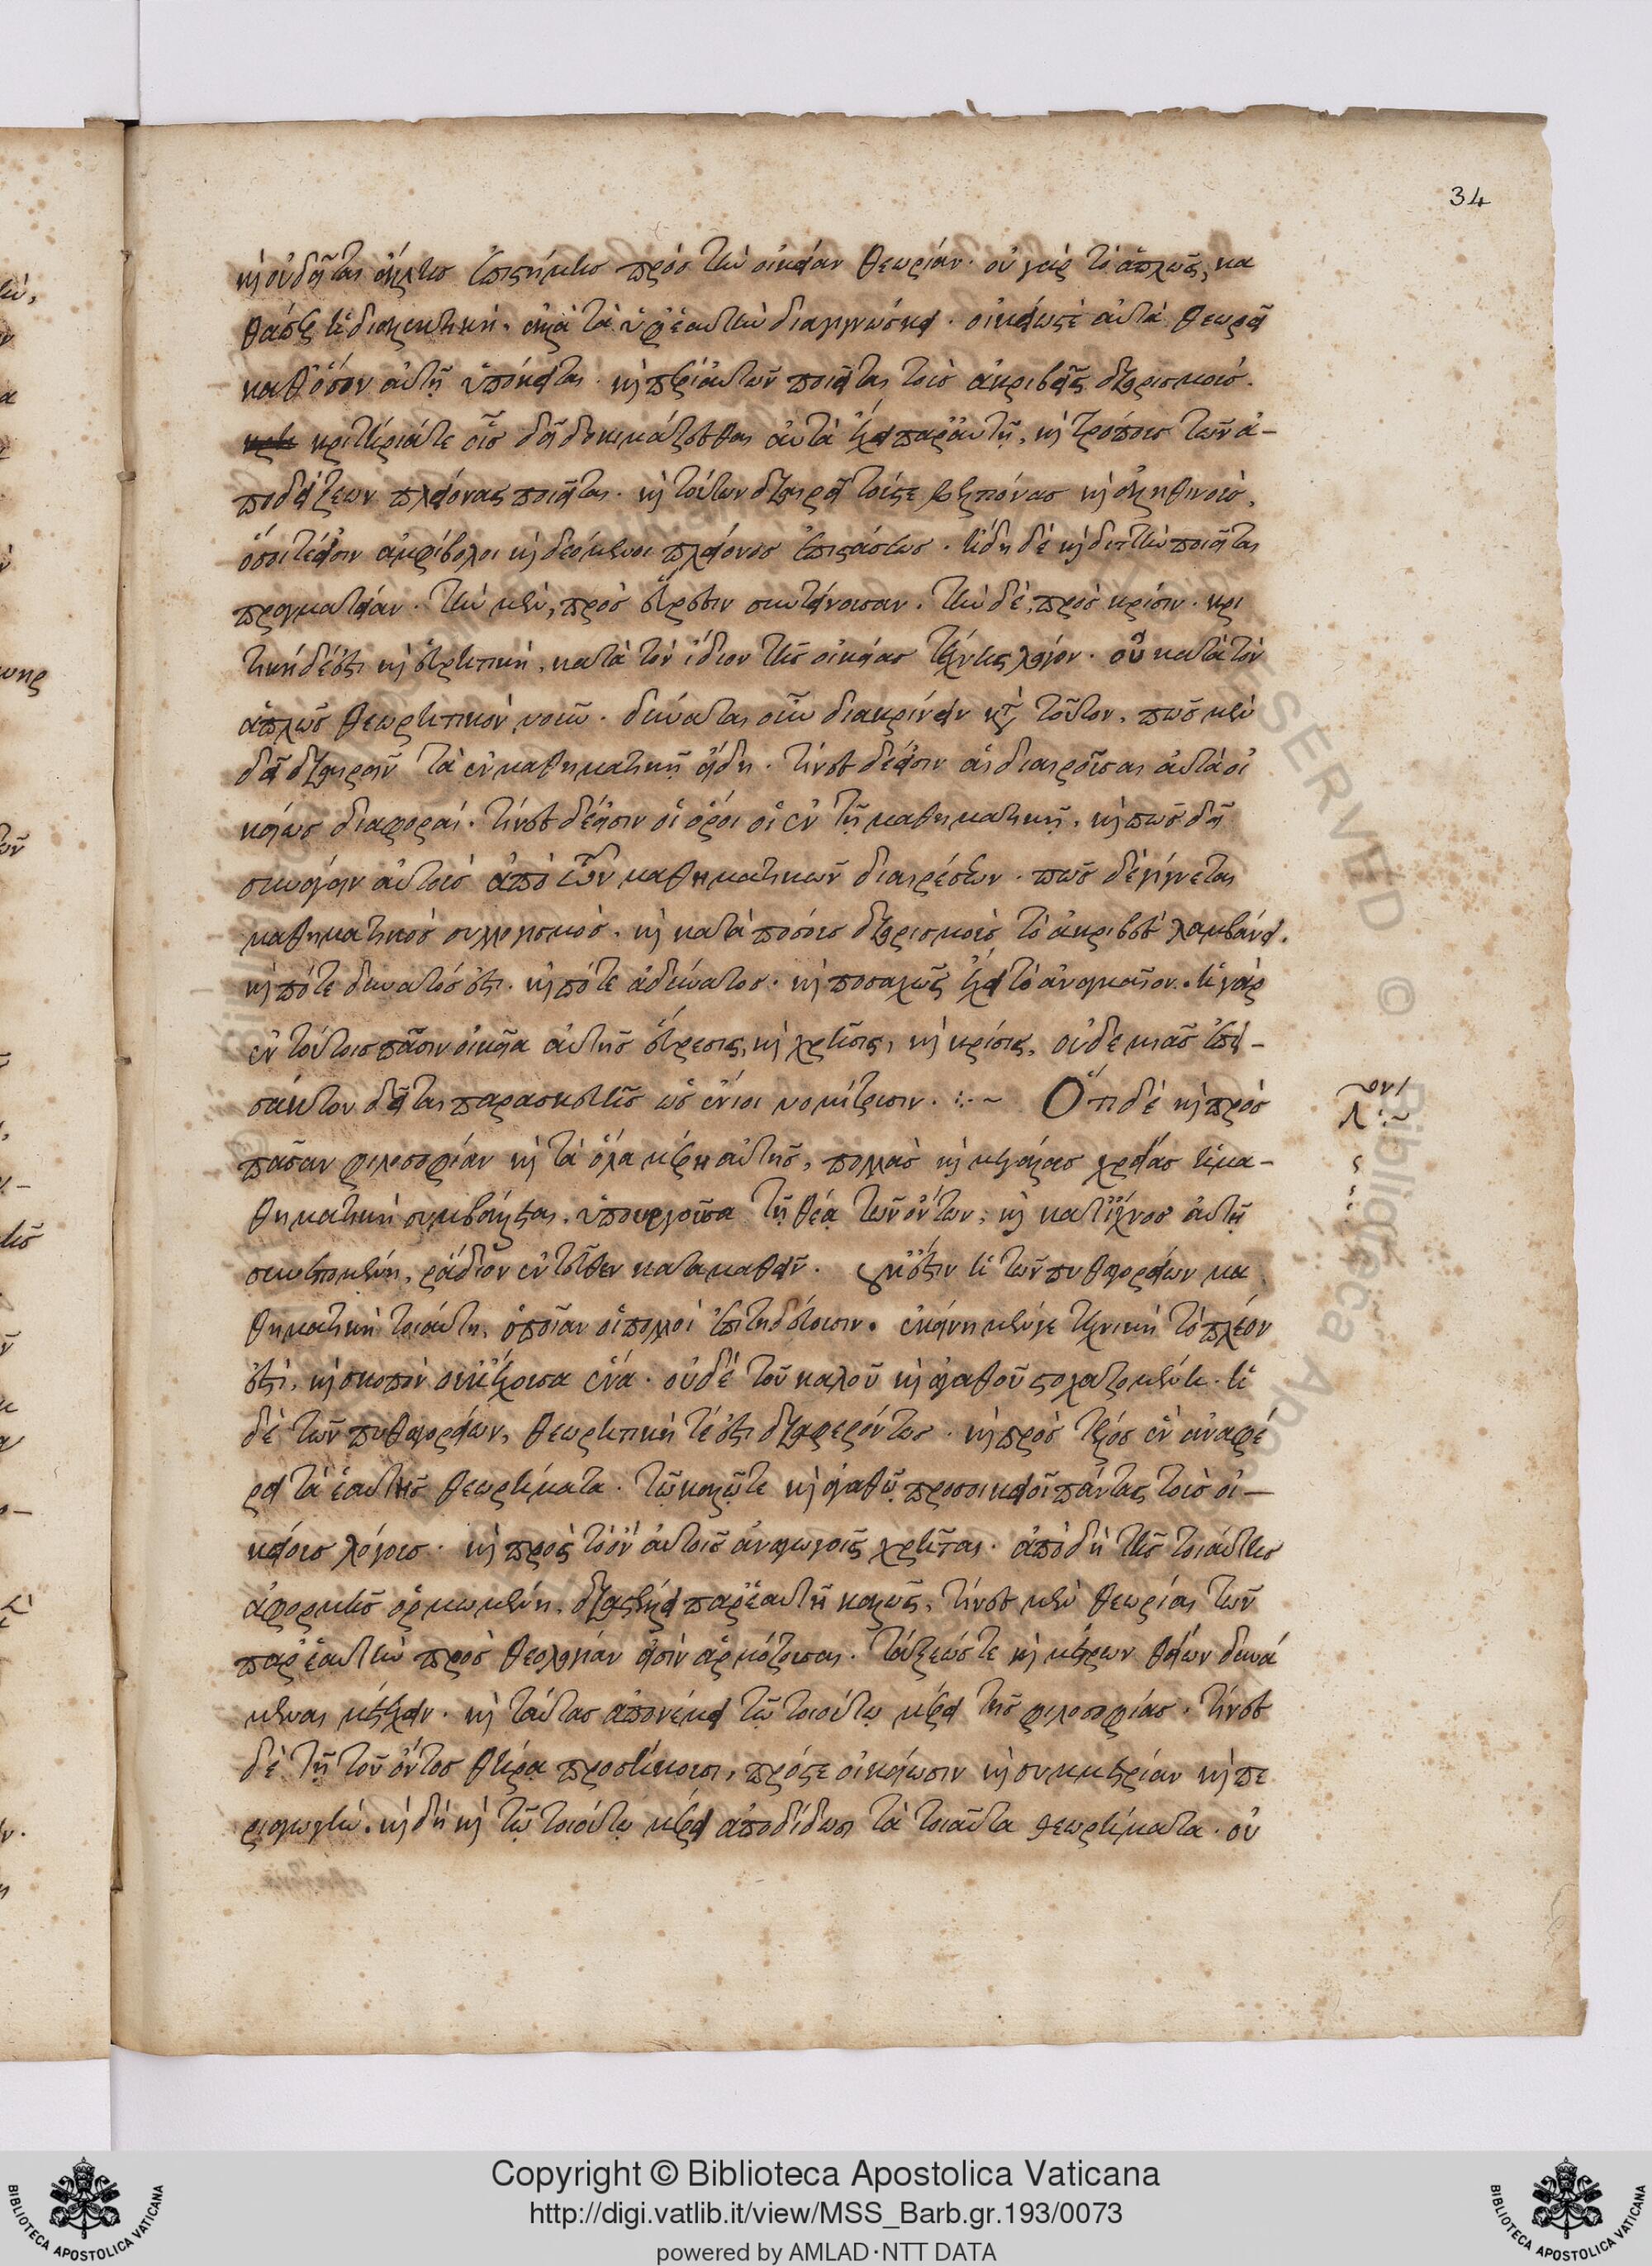 34
καὶ οὐ δεῖται ἄλλης ἐπιστήμης πρὸς τὴν οἰκείαν θεωρίαν. οὐ γὰρ τὸ ἁπλῶς, κα
θάπερ ἡ διαλεκτικὴ. ἀλλὰ τὰ ὑφ' ἑαυτὴν διαγιγνώσκει. οἰκείως τὲ αὐτὰ θεωρεῖ
καθόσον αὐτῇ ὑπόκειται. καὶ περὶ αὐτῶν ποιεῖται τοὺς ἀκριβεῖς διορισμούς.
κριτήριά τε οἷς δεῖ δοκιμάζεσθαι αὐτὰ ἔχει παρ' αὐτῇ, καὶ τρόπους τῶν ἀ-
ποδείξεων πλείονας ποιεῖται. καὶ τούτων διαιρεῖ τούς τε βλέποντας καὶ ἀληθινούς,
ὅσοι τέ εἰσιν ἀμφίβολοι καὶ δεόμενοι πλείονος ἐπιστάσεως. ἤδη δὲ καὶ διττὴν ποιεῖται
πραγματείαν. τὴν μὲν, πρὸς εὕρεσιν συντείνουσαν. τὴν δὲ, πρὸς κρίσιν. κρι
τικὴ δέ ἐστι καὶ εὑρετικὴ, κατὰ τὸν ἴδιον τῆς οἰκείας τέχνης λόγον. οὐ κατὰ τὸν
ἁπλῶς θεωρητικὸν νοῦν. δύναται οὖν διακρίνειν κατὰ τοῦτον, πῶς μὲν
δεῖ διαιρεῖν τὰ ἐν μαθηματικῇ εἴδη. τίνες δέ εἰσιν αἱ διαιροῦσαι αὐτὰ οἰ
κείως διαφοραί. τίνες δέ εἰσιν οἱ ὅροι οἱ ἐν τῇ μαθηματικῇ, καὶ πῶς δεῖ
συνάγειν αὐτοὺς ἀπὸ τῶν μαθηματικῶν διαιρέσεων. πῶς δὲ γίγνεται
μαθηματικὸς συλλογισμὸς. καὶ κατὰ πόσους διορισμοὺς τὸ ἀκριβὲς λαμβάνει.
καὶ πότε δυνατός ἐστι. καὶ πότε ἀδύνατος. καὶ ποσαχῶς ἔχει τὸ ἀναγκαῖον. ἡ γὰρ
ἐν τούτοις πᾶσιν οἰκεῖα αὐτῆς εὕρεσις, καὶ χρῆσις, καὶ κρίσις, οὐδεμιᾶς ἐπει-
σάκτου δεῖται παρασκευῆς ὡς ἔνιοι νομίζουσιν. :~ Ὅτι δὲ καὶ πρὸς
πᾶσαν φιλοσοφίαν καὶ τὰ ὅλα μέρη αὐτῆς, πολλὰς καὶ μεγάλας χρείας ἡ μα-
θηματικὴ συμβάλλεται, ὑπουργοῦσα τῇ θέᾳ τῶν ὄντων, καὶ κατ' ἴχνος αὐτῇ
συνεπομένη, ῥᾴδιον ἐντεῦθεν καταμαθεῖν. οὐκ ἔστιν ἡ τῶν πυθαγορείων μα
θηματικὴ τοιαύτη, ὁποίαν οἱ πολλοὶ ἐπιτηδεύουσιν. ἐκείνη μὲν γε τεχνικὴ τὸ πλέον
ἐστὶ, καὶ σκοπὸν οὐκ ἔχουσα ἕνα. οὐδὲ τοῦ καλοῦ καὶ ἀγαθοῦ στοχαζομένη. ἡ
δὲ τῶν πυθαγορείων, θεωρητική τέ ἐστι διαφερόντως. καὶ πρὸς τέλος ἓν ἀναφέ
ρει τὰ ἑαυτῆς θεωρήματα. τῷ καλῷ τε καὶ ἀγαθῷ προσοικειοῖ πάντας τοὺς οἰ-
κείους λόγους. καὶ πρὸς τὸ ὂν αὐτοῖς ἀναγωγοῖς χρῆται. ἀπὸ δὴ τῆς τοιαύτης
ἀφορμῆς ὁρμωμένη, διαστέλλει παρ' ἑαυτῇ καλῶς, τίνες μὲν θεωρίαι τῶν
παρ' ἑαυτὴν πρὸς θεολογίαν εἰσὶν ἁρμόζουσαι. τάξεώς τε καὶ μέτρων θείων δυνά
μεναι μετέχειν. καὶ ταύτας ἀπονέμει τῷ τοιούτῳ μέρει τῆς φιλοσοφίας. τίνες
δὲ τῇ τοῦ ὄντος θήρᾳ προσήκουσι, πρός τε οἰκείωσιν καὶ συμμετρίαν καὶ πε
ριαγωγὴν. καὶ δὴ καὶ τῷ τοιούτῳ μέρει ἀποδίδωσι τὰ τοιαῦτα θεωρήματα. οὐ
Copyright © Biblioteca Apostolica Vaticana
http://digi.vatlib.it/view/MSS_Barb.gr.193/0073
powered by AMLAD·NTT DATA